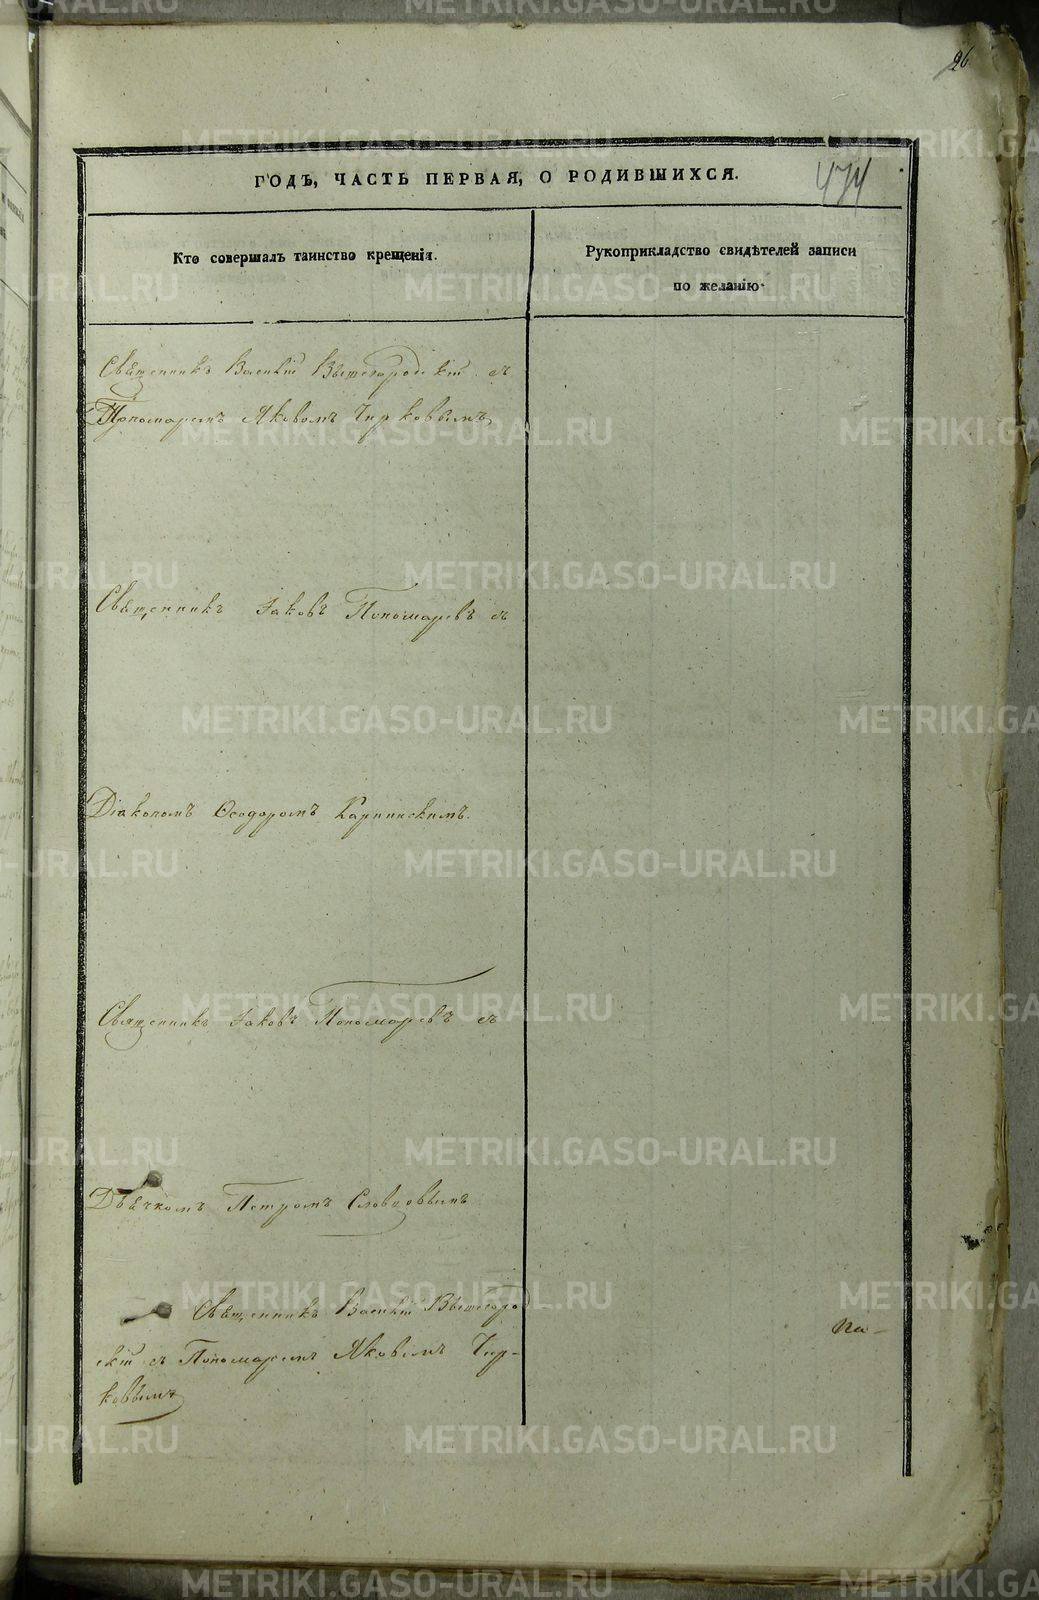 96
474
ГОДЪ, ЧАСТЬ ПЕРВАЯ, О РОДИВШИХСЯ.
Кто совершалъ таинство крещенія.
Рукоприкладство свидѣтелей записи
по желанію.
Священникъ Василій Вышегородскій съ
Пономаремъ Яковомъ Чирковымъ
Священникъ Іаковъ Пономаревъ съ
Діакономъ Ѳеодоромъ Карпинскимъ.
Священникъ Іаковъ Пономаревъ съ
Дьячкомъ Петромъ Словцовымъ
Священникъ Василій Вышегоро
скій съ Пономаремъ Яковымъ Чир-
ковымъ
На-
METRIKI.GASO-URAL.RU